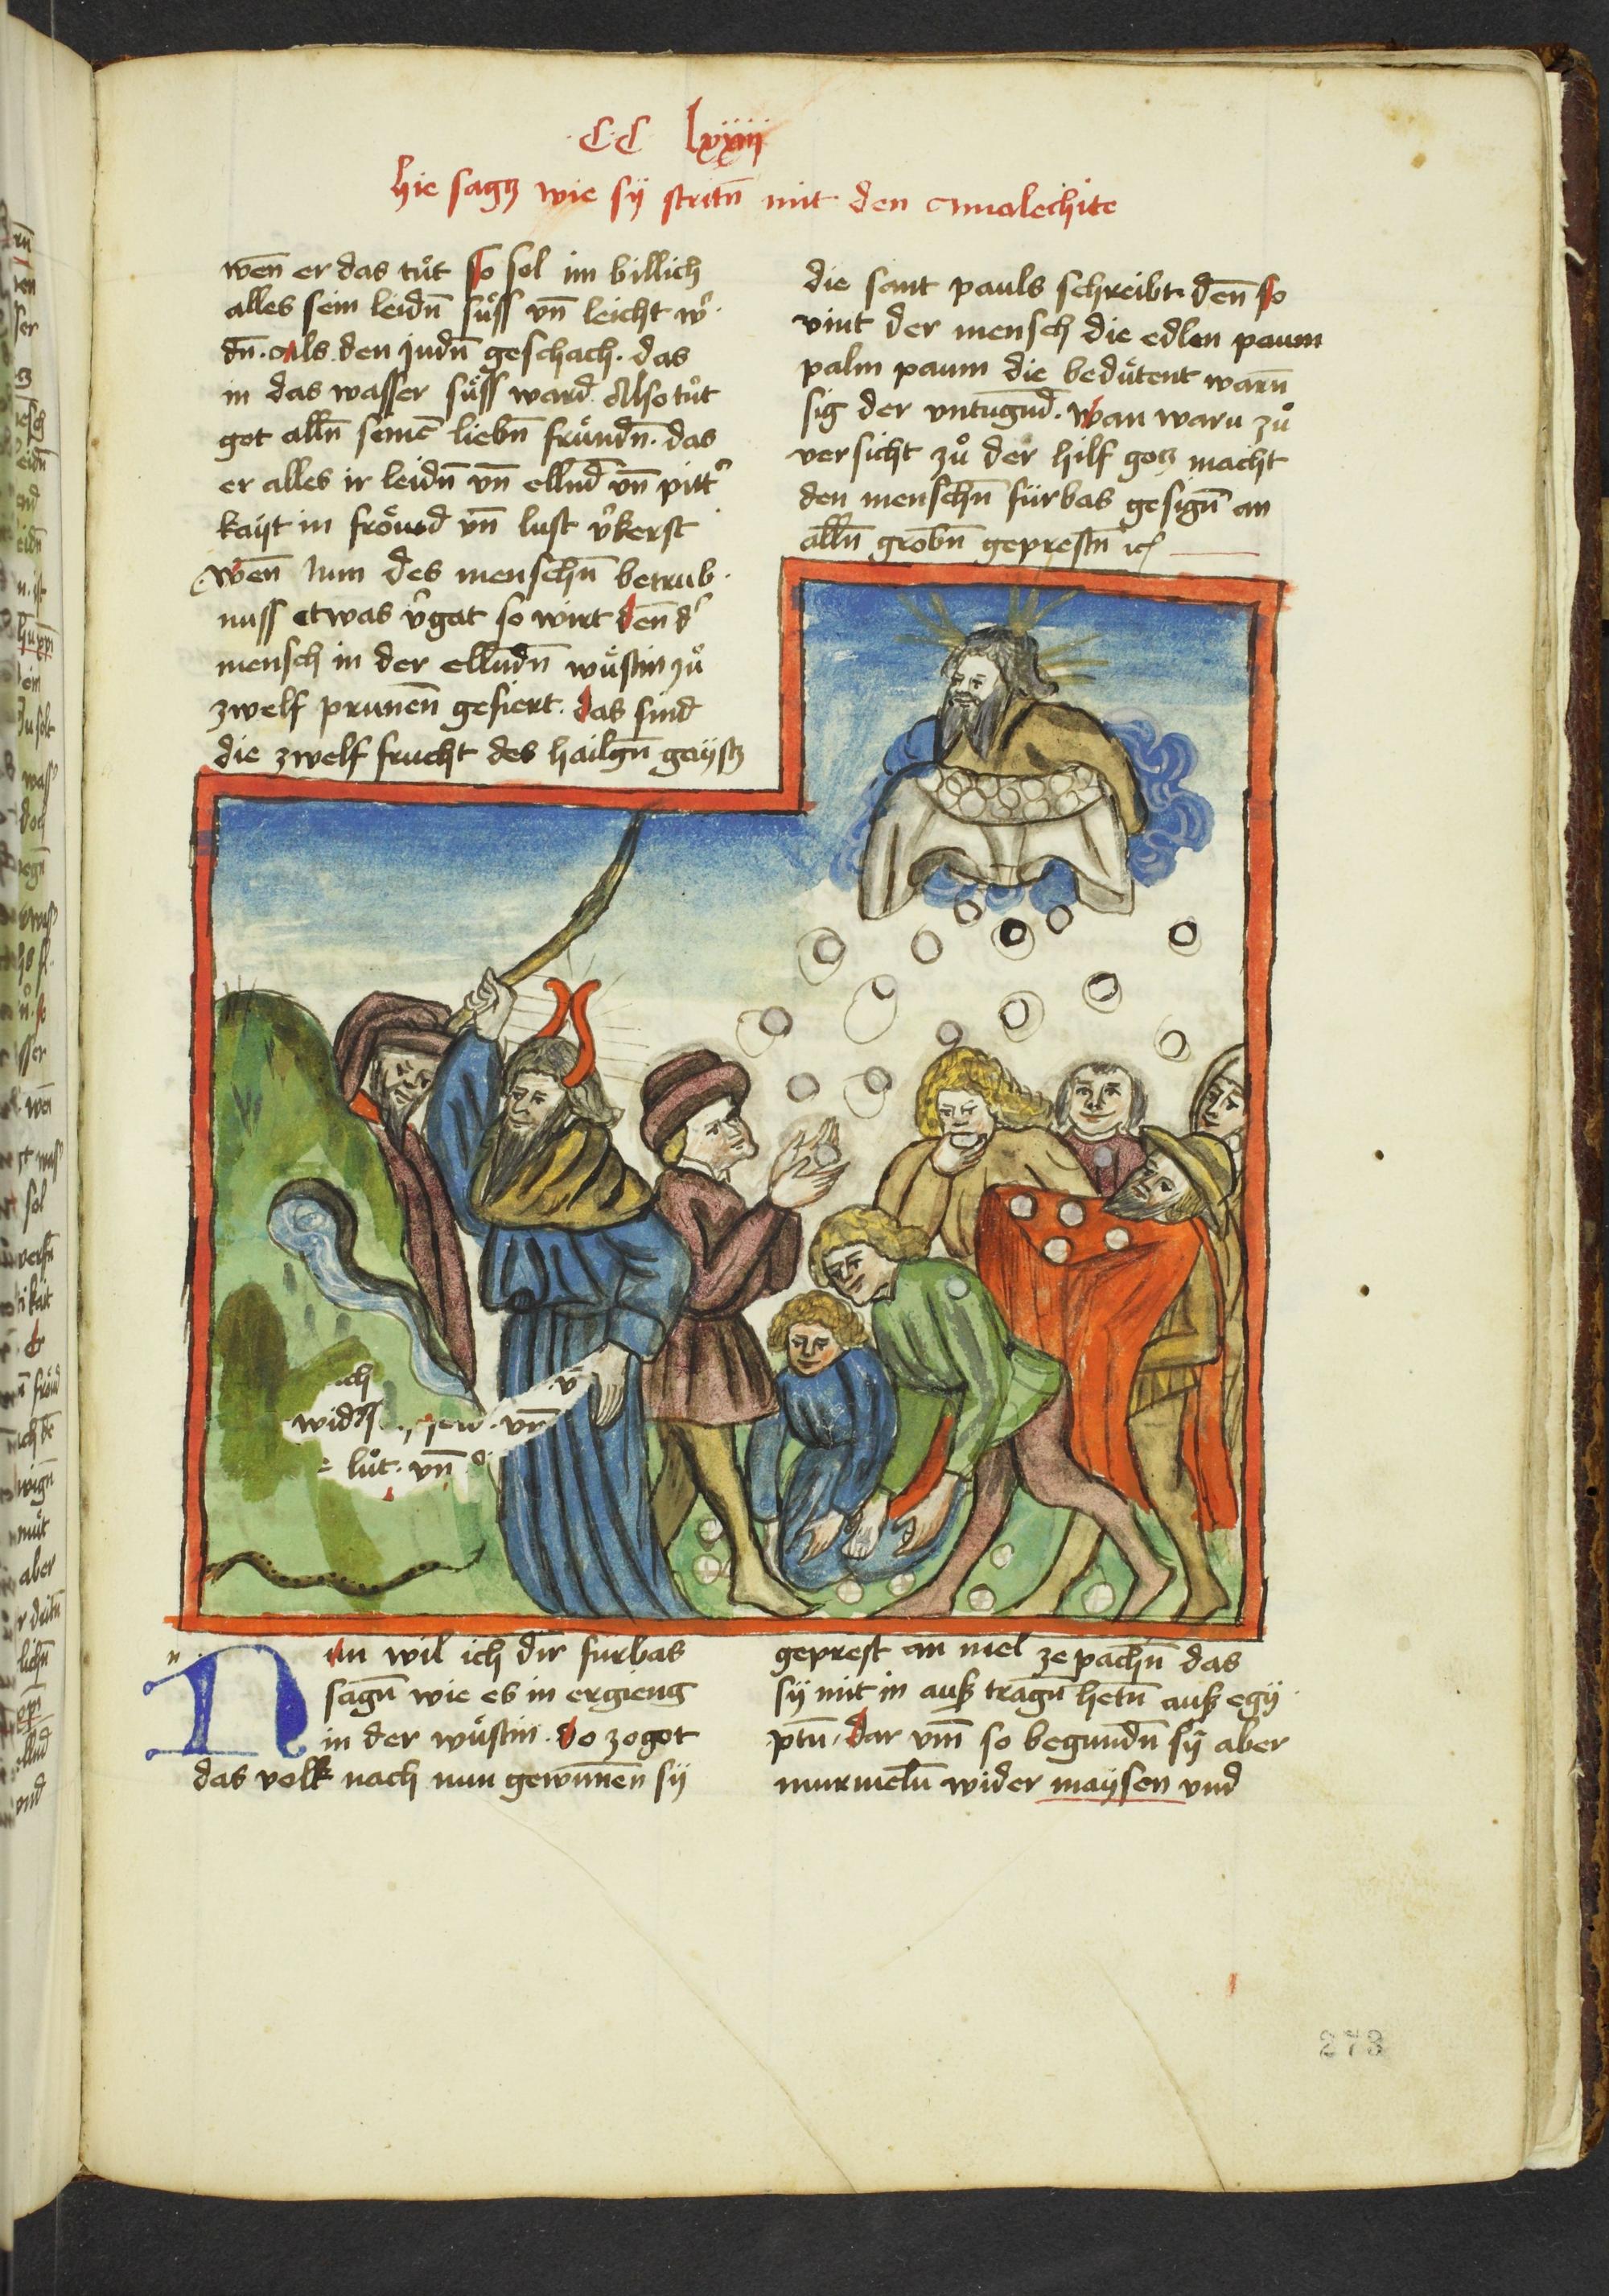 C C lxxiij
hie sagt wie sÿ stritn̄ mit den Amalechite
wen̄ er das tuͦt so sol im billich
alles sein leidn̄ suͤss vn̄ leicht w͛
dn̄. als den judn̄ geschach. das
in das wasser suͤss ward Also tuͦt
got alln̄ seinē liebn̄ fruͤndn̄. das
er alles ir leidn̄ vn̄ ellnd̄ vn̄ pitt͛
kaÿt in froͤud vn̄ lust v͛kerst
Wen̄ Num des menschn̄ betrub
nuss etwas v͛gat so wirt den̄ d͛
mensch in der ellndn̄ wuͤstin zuͦ
zwelf prunen̄ gefiert. das sind
die zwelf frucht des hailgn̄ gaÿstz
die sant pauls schreibt. den̄ so
vint der mensch die edlen paum
palm paum die beduͤtent warn̄
sig der vntugnd̄. wan waru zuͦ
versicht zuͦ der hilf gotz macht
den menschn̄ fürbas gesign̄ an
alln̄ grobn̄ geprestn̄ ⁊c
ch
wid͛ss vn̄
luͦt. vn̄
n
un wil ich dir furbas
sagn̄ wie es in ergieng
in der wuͤstin. do zogot
das volk nach nun gewunnen̄ sÿ
geprest an mel ze pachn̄ das
sÿ mit in auß tragn̄ hetn̄ auß egÿ
ptn̄. dar vm̄ so begundn̄ sÿ aber
murmeln̄ wider maÿsen vnd
273